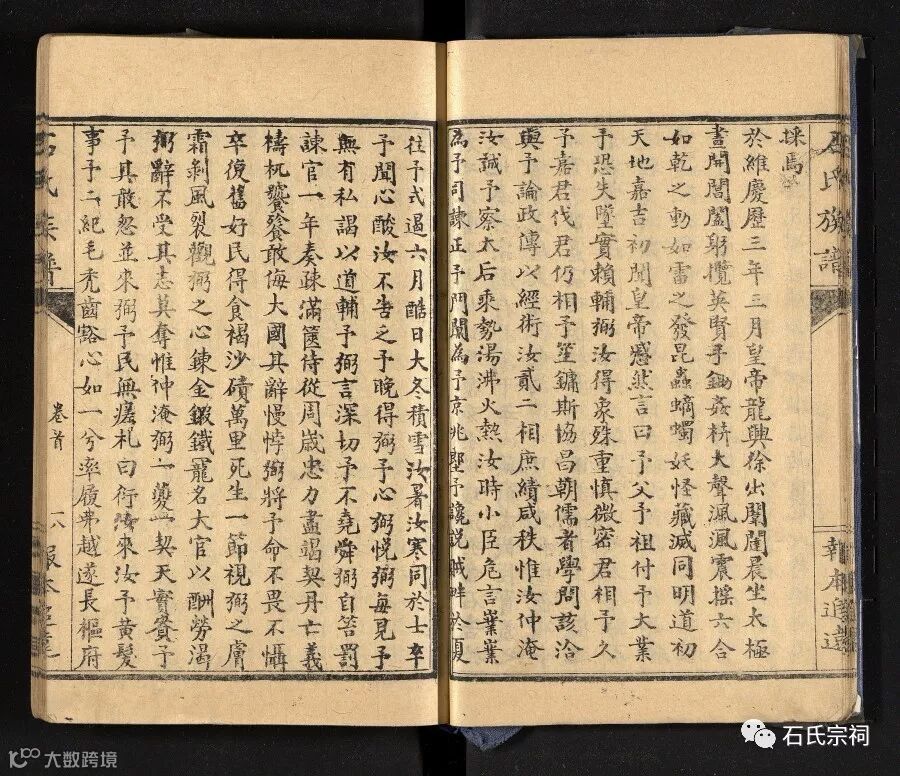 石氏族譜
報本追遠
採馬
於維慶歷三年三月皇帝龍興徐出闈闥晨坐太極
晝開閶闔躬攬英賢手鋤姦枿大聲渢風震搖六合
如乾之動如雷之發昆蟲蠋妖怪藏滅同明道初
天地嘉吉初聞皇帝慼然言曰予父予祖付予大業
予恐失墜實賴輔弼汝得象殊重慎微密君相予久
予嘉君伐君仍相予笙鏞斯協昌朝儒者學問該洽
與予論政傳以經術汝貳二相庶績咸秩惟汝仲淹
汝誠予察太后乘勢湯沸火熱汝時小臣危言葉葉
為予同諫正予門闑為予京兆堲予讒説賊畔於夏
往予式遏六月酷日大冬積雪汝暑汝寒同於士卒
予聞心酸汝不告乏予晚得弼予心弼悅弼每見予
無有私謁以道輔予弼言深切予不堯舜弼自笞罰
諫官一年奏疎滿篋侍從周歲忠力盡竭契丹亡義
檮杌饕餮敢侮大國其辭慢悖弼將予命不畏不懾
卒復舊好民得食褐沙磧萬里死生一節視弼之膚
霜剝風裂觀弼之心鍊金鍛鐵寵名大官以酬勞渴
弼辭不受其志莫奪惟仲淹弼一夔一契天實賚予
予其敢忽並來弼予民無瘥札曰衍汝來汝予黃髮
事予二紀毛禿齒豁心如一兮率履弗越遂長樞府
石氏族譜
卷首
一八
報本追遠
石氏宗祠
大数跨境